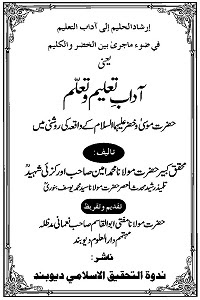 إرشاد الحليم إلى آداب التعليم
في ضوء ماجرى بين الخضر والكليم
یعنی
آداب تعلیم و تعلّم
حضرت موسیٰ و خضر علیہما السلام کے واقعہ کی روشنی میں
تالیف:
محقق کبیر حضرت مولانا محمد امین صاحب اورکزئی شہیدؒ
تلمیذ رشید محدث العصر حضرت مولانا سید محمد یوسف بنوریؒ
تقدیم و تقریظ
حضرت مولانا مفتی ابوالقاسم صاحب نعمانی مدظلہ
مہتمم دارالعلوم دیوبند
ناشر:
ندوة التحقيق الاسلامي ديوبند